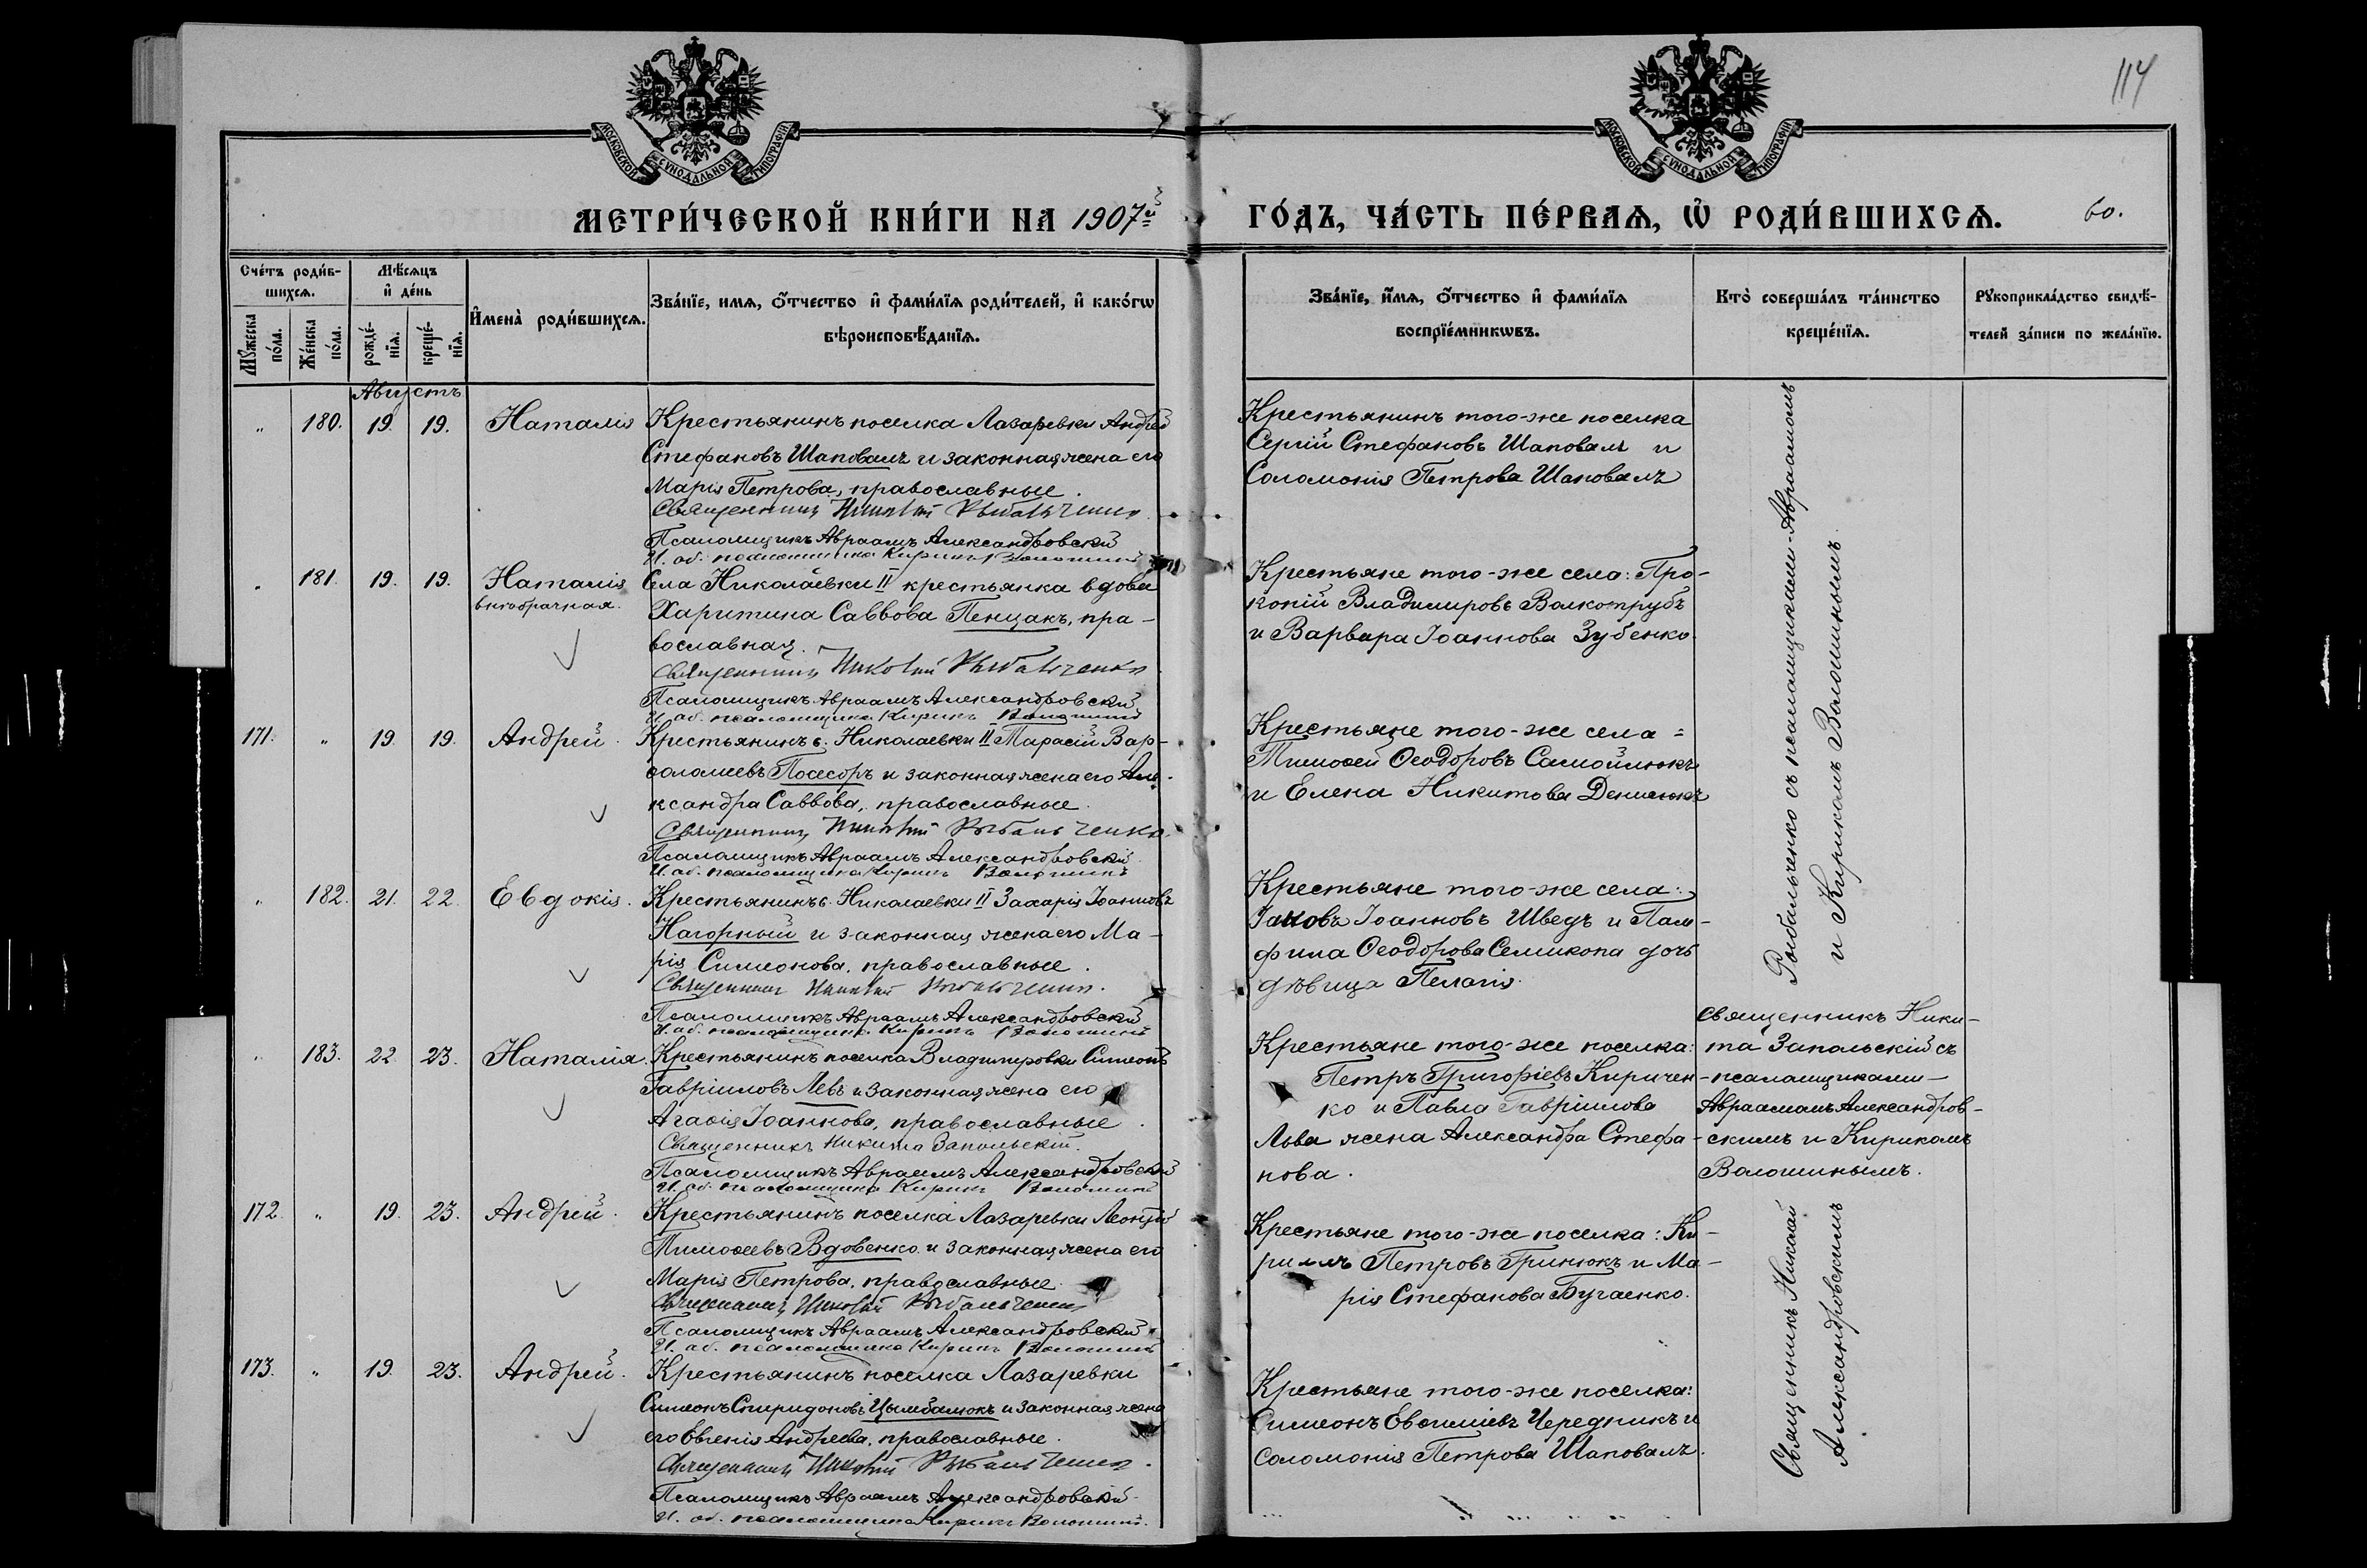 114
МОСКОВСКОЙ СУНОДАЛЬНОЙ ТИПОГРАФІИ.
МОСКОВСКОЙ СУНОДАЛЬНОЙ ТИПОГРАФІИ.
МЕТРИ́ЧЕСКОЙ КНИ́ГИ НА 1907й
ГО́ДЪ, ЧА́СТЬ ПЕ́РВАѦ, Ѽ РОДИ́ВШИХСѦ.
60.
Сче́тъ роди́в-
шихсѧ.
Мꙋ́жеска по́ла.
Же́нска по́ла.
Мѣ́сѧцъ
и де́нь
рожде́-
нїѧ.
креще́-
нїѧ.
И҆мена̀ роди́вшихсѧ.
Зва́нїе, имѧ, ѻ҆́тчество и҆ фами́лїѧ роди́телей, и҆ како́гѡ
вѣроисповѣ́данїѧ.
Зва́нїе, и҆́мѧ, ѻ҆́тчество и҆ фами́лїѧ
воспрїе́мникѡвъ.
Кто̀ соверша́лъ та́инство
креще́нїѧ.
Рꙋкоприкла́дство свидѣ́-
телей за́писи по жела́нїю.
Августъ
" 180. 19. 19. Наталія
Крестьянинъ поселка Лазаревки Андрей
Стефановъ Шаповалъ и законная жена его
Марія Петрова, православные.
Священникъ Николай Рыбальченко
Псаломщикъ Авраамъ Александровскій
И. об. псаломщика Кирикъ Волошинъ
Крестьянинъ того-же поселка
Сергій Стефановъ Шаповалъ и
Соломонія Петрова Шаповалъ
" 181. 19. 19. Наталія
внѣбрачная.
Села Николаевки II крестьянка вдова
Харитина Саввова Пенцакъ, пра-
вославная.
Священникъ Николай Рыбальченко
Псаломщикъ Авраамъ Александровскій
И. об. псаломщика Кирикъ Волошинъ
Крестьяне того-же села: Про-
копій Владимировъ Волкотрубъ
и Варвара Іоаннова Зубенко.
171. " 19. 19. Андрей.
Крестьянинъ с. Николаевки II Тарасій Вар-
ѳоломеевъ Посесоръ и законная жена его Але-
ксандра Саввова, православные.
Священникъ Николай Рыбальченко.
Псаломщикъ Авраамъ Александровскій
И. об. псаломщика Кирикъ Волошинъ
Крестьяне того-же села =
Тимоѳей Ѳеодоровъ Самойлюкъ
и Елена Никитова Денисюкъ
" 182. 21. 22. Евдокія.
Крестьянинъ с. Николаевки II Захарія Іоанновъ
Нагорный и законная жена его Ма-
рія Симеонова, православные.
Священникъ Николай Рыбальченко.
Псаломщикъ Авраамъ Александровскій
И. об. псаломщика Кирикъ Волошинъ
Крестьяне того-же села:
Іаковъ Іоанновъ Шведъ и Пам-
фила Ѳеодорова Семикопа дочь
дѣвица Пелагія.
Рыбальченко съ псаломщиками Авраамомъ
и Кирикомъ Волошинымъ.
" 183. 22. 23. Наталія.
Крестьянинъ поселка Владимировки Симеонъ
Гавріиловъ Левъ и законная жена его
Агаѳія Іоаннова, православные.
Священникъ Никита Запольскій.
Псаломщикъ Авраамъ Александровскій
И. об. псаломщика Кирикъ Волошинъ
Крестьяне того-же поселка:
Петръ Григоріевъ Киричен-
ко и Павла Гавріилова
Льва жена Александра Стефа-
нова.
Священникъ Ники-
та Запольскій съ
псаломщиками
Авраамомъ Александров-
скимъ и Кирикомъ
Волошинымъ.
172. " 19. 23. Андрей.
Крестьянинъ поселка Лазаревки Леонтій
Тимоѳеевъ Вдовенко и законная жена его
Марія Петрова, православные.
Священникъ Николай Рыбальченко
Псаломщикъ Авраамъ Александровскій
И. об. псаломщика Кирикъ Волошинъ
Крестьяне того-же поселка: Ки-
риллъ Петровъ Гринюкъ и Ма-
рія Стефанова Бугаенко.
173. " 19. 23. Андрей.
Крестьянинъ поселка Лазаревки
Симеонъ Спиридоновъ Цымбалюкъ и законная жена
его Евгенія Андреева, православные.
Священникъ Николай Рыбальченко.
Псаломщикъ Авраамъ Александровскій
И. об. псаломщика Кирикъ Волошинъ.
Крестьяне того-же поселка:
Симеонъ Евѳиміевъ Чередникъ и
Соломонія Петрова Шаповалъ.
Священникъ Николай
Александровскимъ